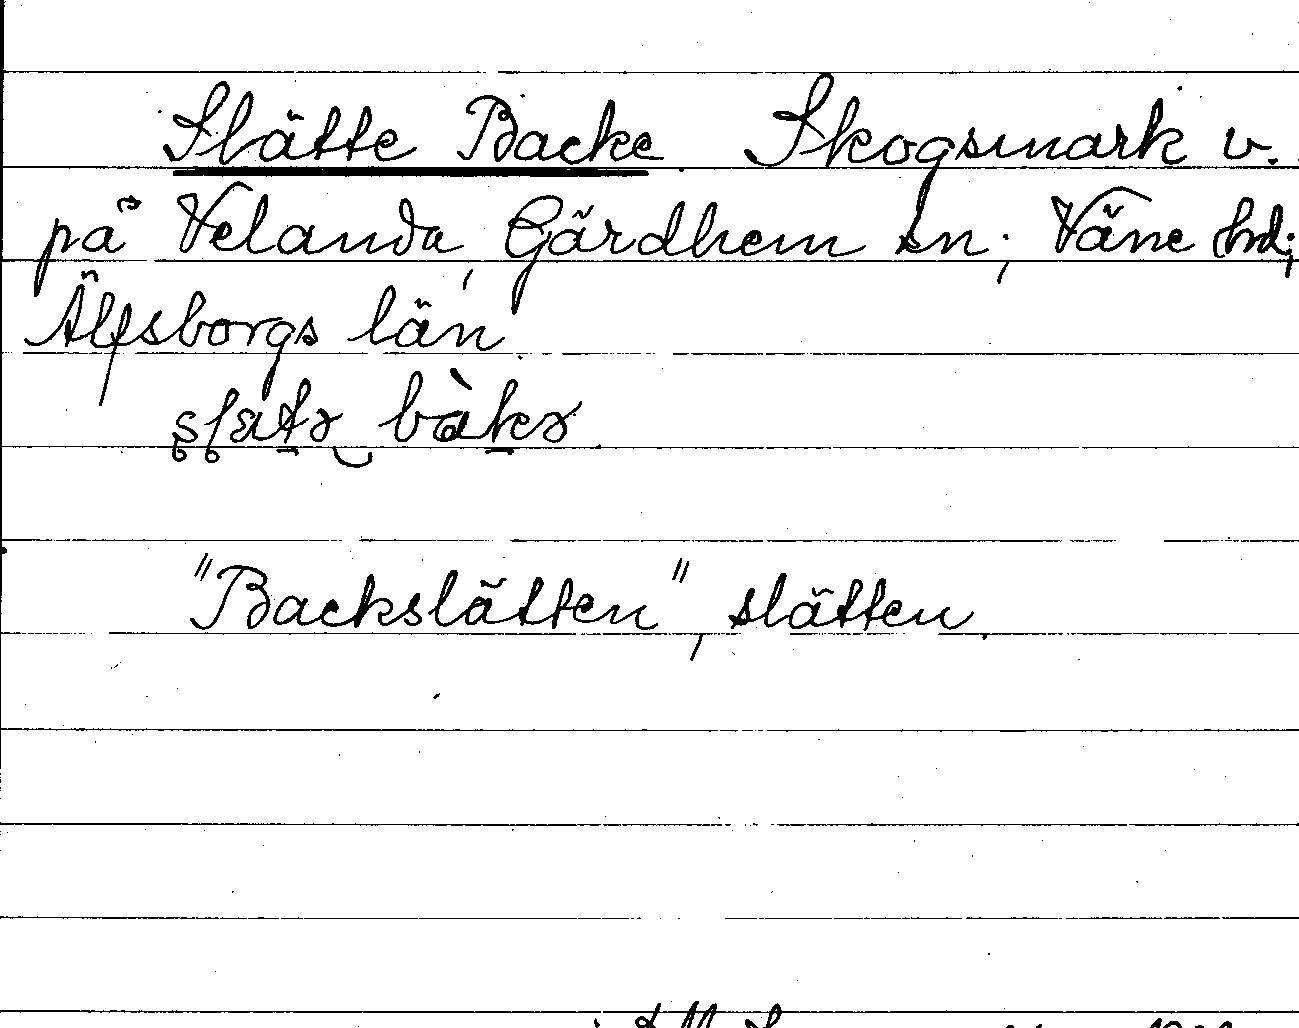 Slätte Backe. Skogsmark v.
på Velanda, Gärdhem sn; Väne hd;
Älfsborgs län.
"Backslätten", slätten.